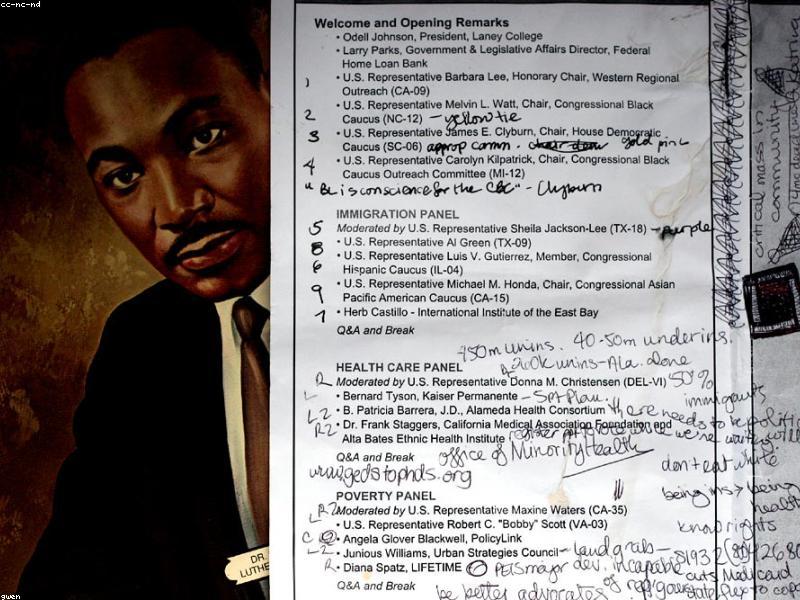 cc-nc-nd
Welcome and Opening Remarks
• Odell Johnson, President, Laney College
• Larry Parks, Government & Legislative Affairs Director, Federal
Home Loan Bank
1 • U.S. Representative Barbara Lee, Honorary Chair, Western Regional
Outreach (CA-09)
• U.S. Representative Melvin L. Watt, Chair, Congressional Black
2 Caucus (NC-12) – yellow tie
3 • U.S. Representative James E. Clyburn, Chair, House Democratic
Caucus (SC-06) approp comm. gold pin
4 • U.S. Representative Carolyn Kilpatrick, Chair, Congressional Black
Caucus Outreach Committee (MI-12)
"BL is conscience for the CBC" - Clyburn
IMMIGRATION PANEL
5 Moderated by U.S. Representative Sheila Jackson-Lee (TX-18) – purple
8 • U.S. Representative Al Green (TX-09)
6 • U.S. Representative Luis V. Gutierrez, Member, Congressional
Hispanic Caucus (IL-04)
9 • U.S. Representative Michael M. Honda, Chair, Congressional Asian
Pacific American Caucus (CA-15)
7 • Herb Castillo - International Institute of the East Bay
Q&A and Break
50m unins. 40-50m underins.
200k unins-Ala. alone
HEALTH CARE PANEL
R Moderated by U.S. Representative Donna M. Christensen (DEL-VI) 50%
L • Bernard Tyson, Kaiser Permanente – immigrants
L2 • B. Patricia Barrera, J.D., Alameda Health Consortium there needs to be
R2 • Dr. Frank Staggers, California Medical Association Foundation and
Alta Bates Ethnic Health Institute register to vote while we're
Q&A and Break office of Minority Health
don't eat white
www.gedstophds.org
being ins > being
health
POVERTY PANEL
LR2 Moderated by U.S. Representative Maxine Waters (CA-35)
• U.S. Representative Robert C. "Bobby" Scott (VA-03)
know rights
C • Angela Glover Blackwell, PolicyLink
L2 • Junious Williams, Urban Strategies Council – land grab –
R • Diana Spatz, LIFETIME dev. incapable cuts Medicaid
Q&A and Break
be better advocates of
critical mass in
community
Katrina
DR.
LUTHE
gwen